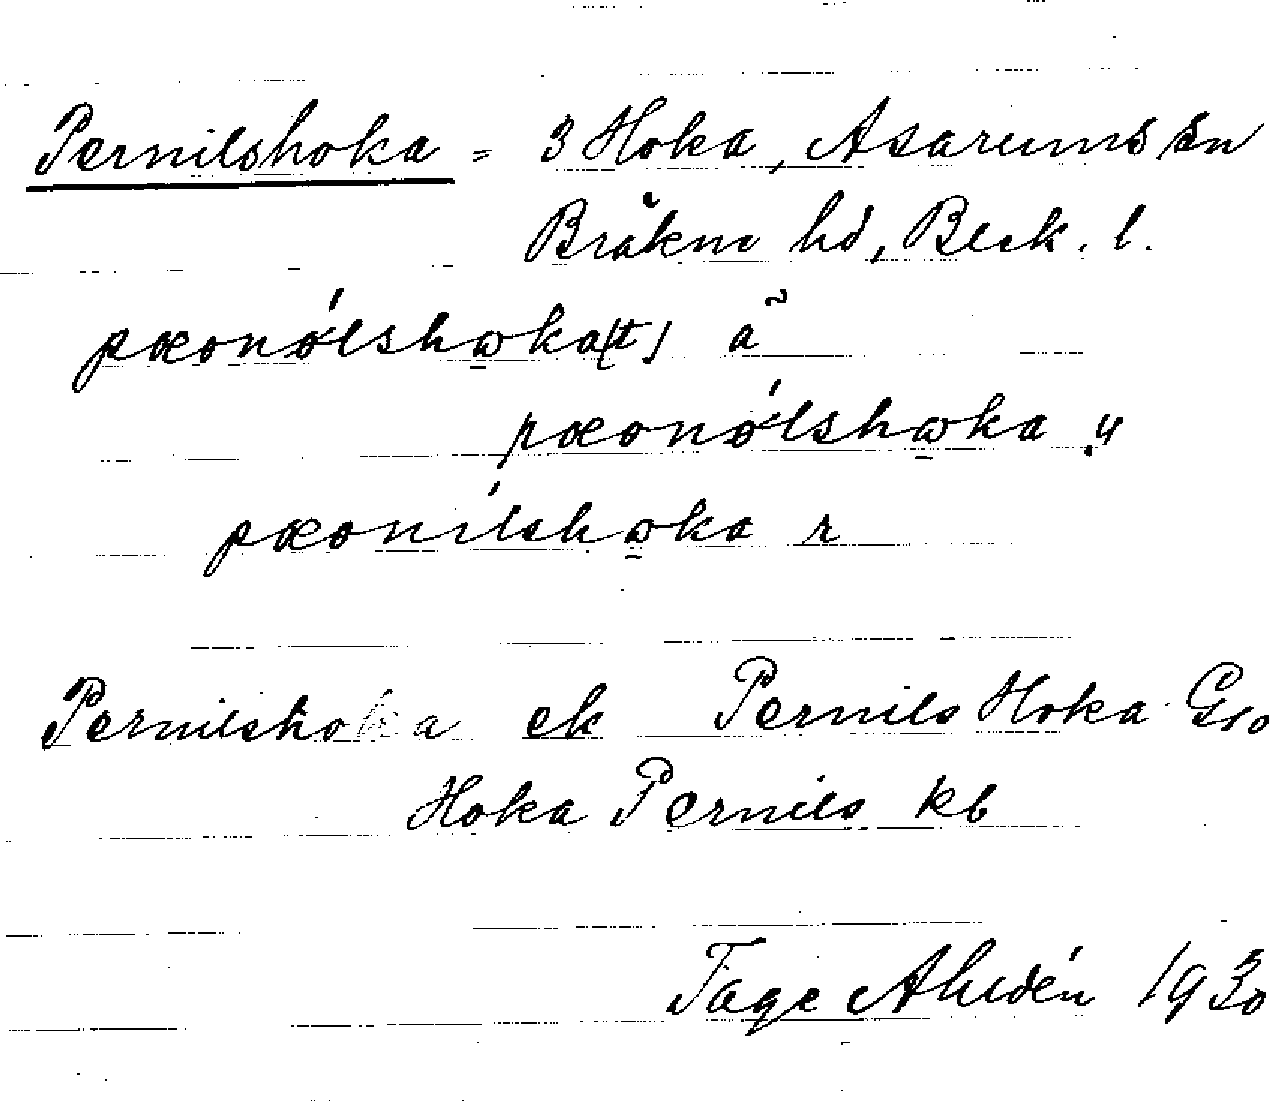 Pernilshoka = 3 Hoka, Asarums sn
Bräkne hd, Blek. l.
pæonó̤lshωka(t) ã
pæonó̤lshωka y
pæonílshωka r
Pernilshoka ek Pernils Hoka Gso
Hoka Pernils kb
Tage Ahldén 1930